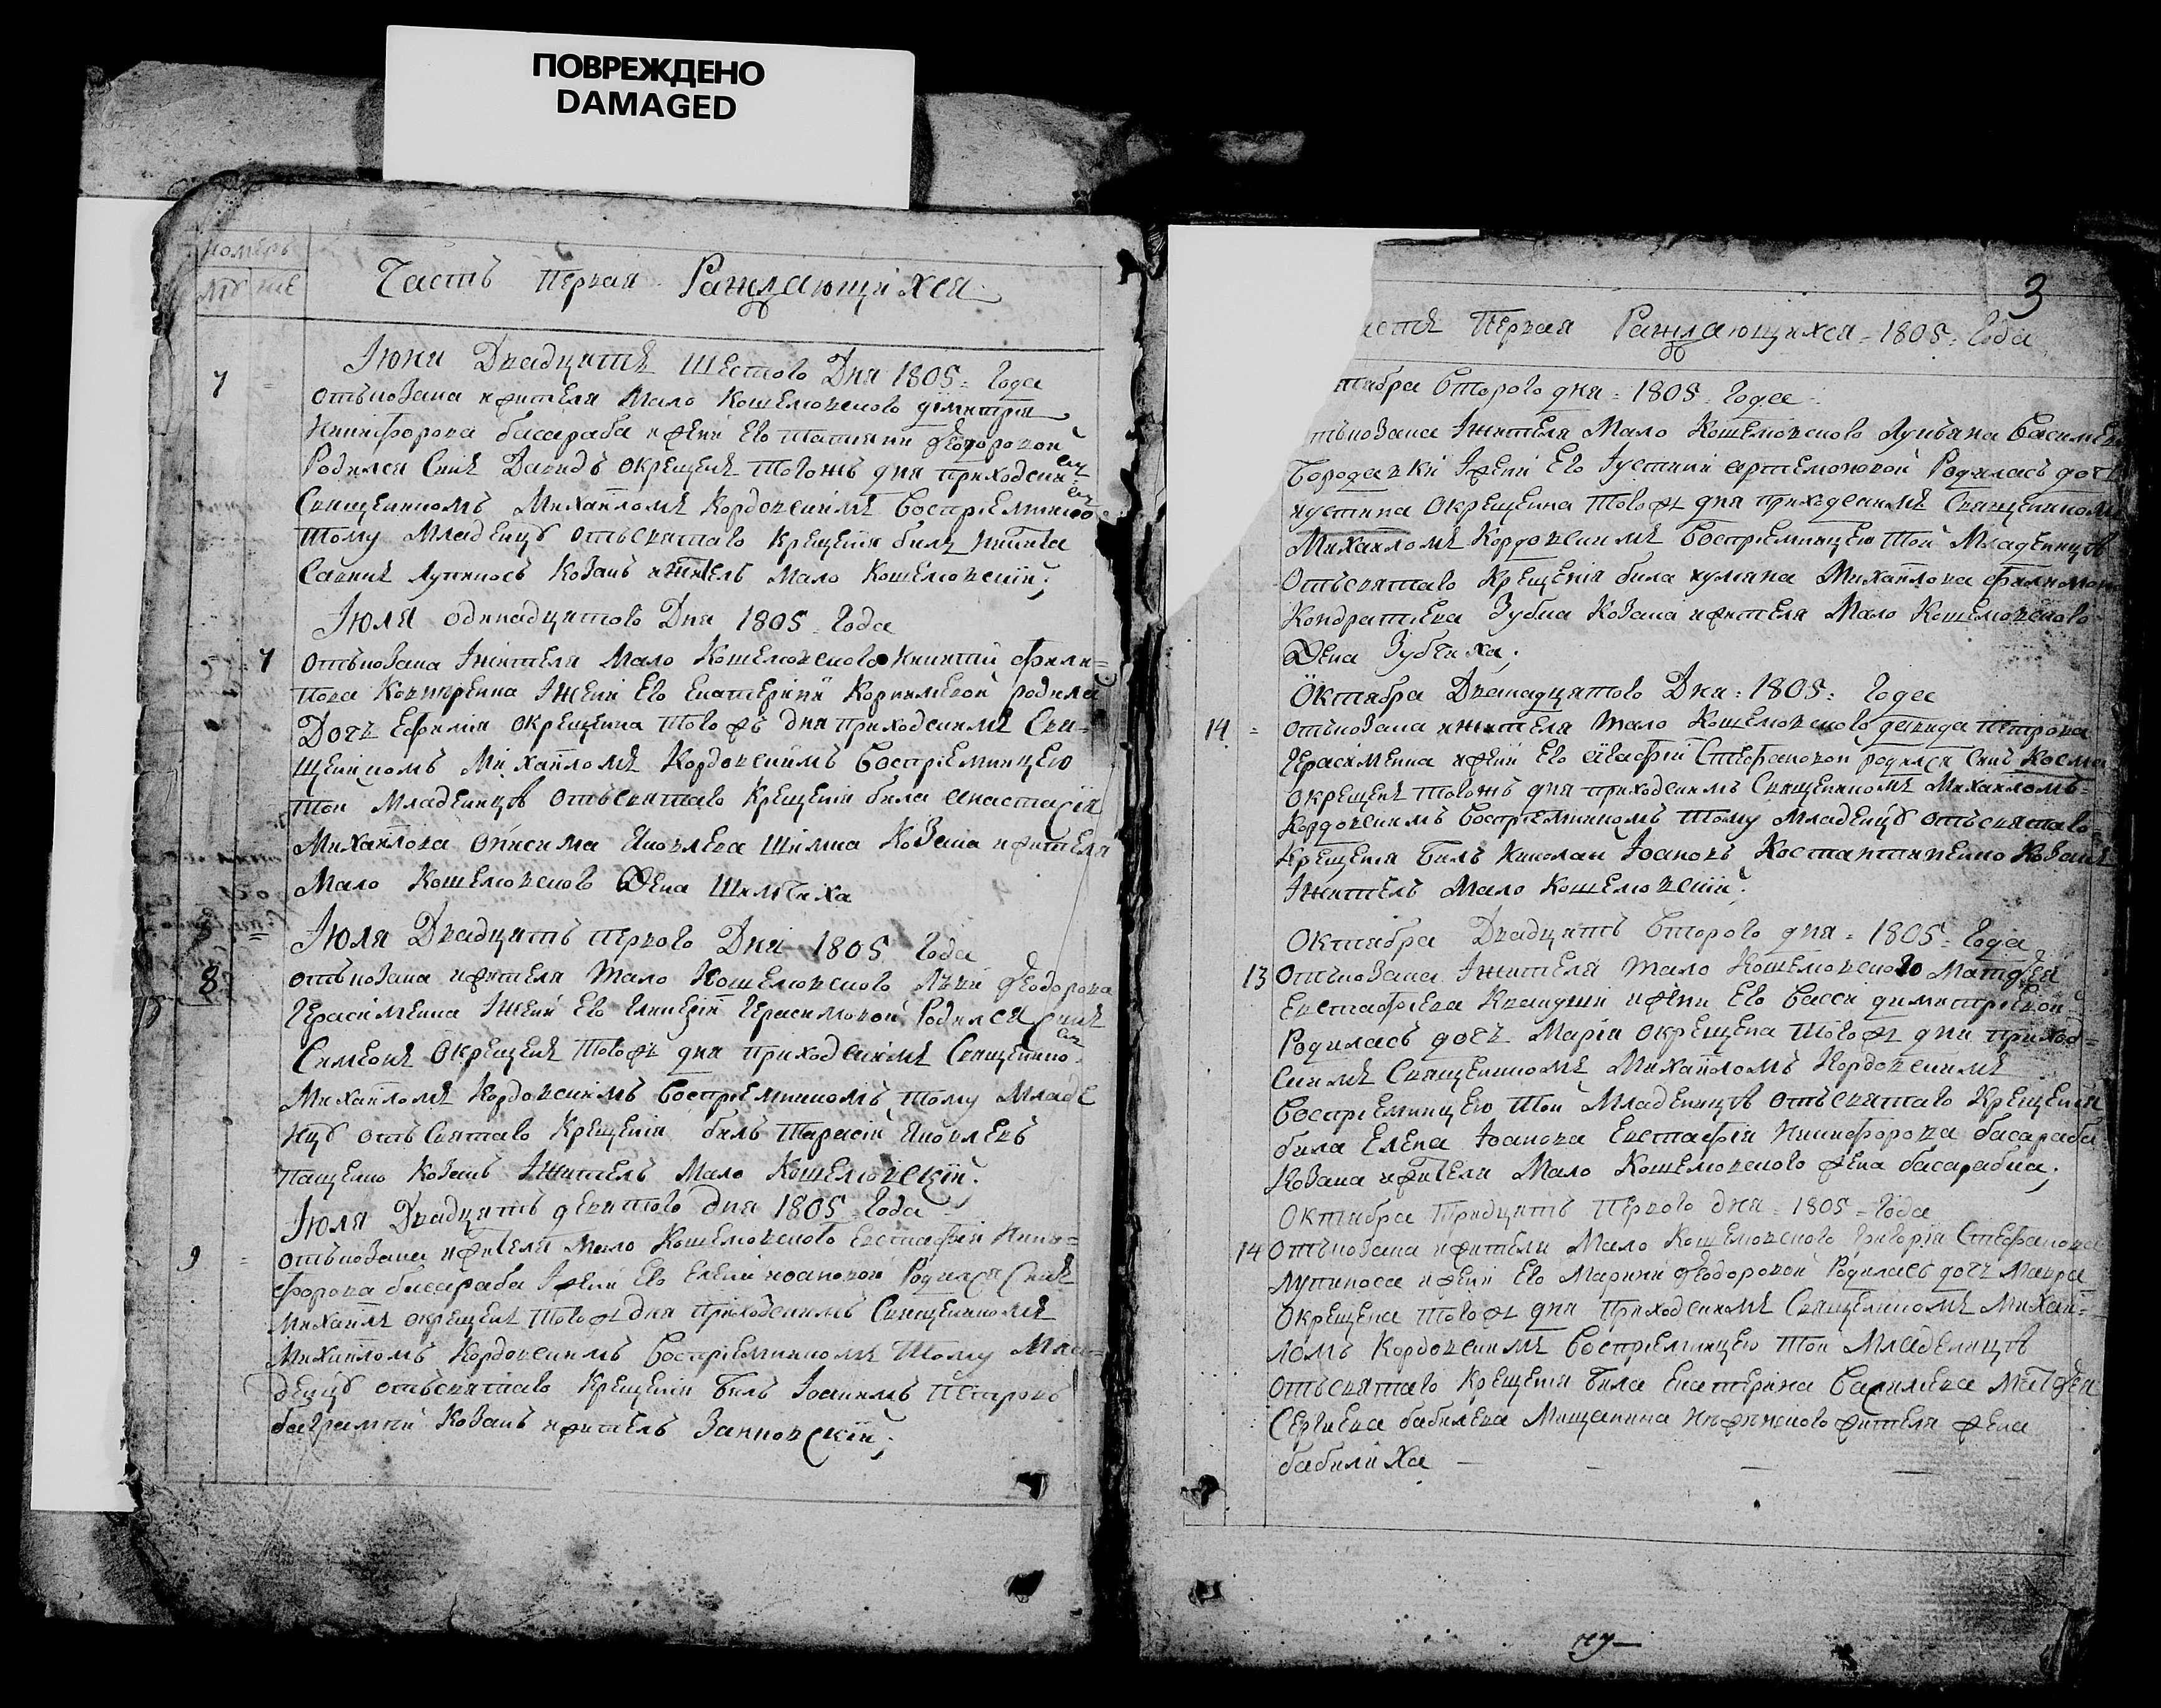 ПОВРЕЖДЕНО
DAMAGED
номеръ
му же
Часть Первая Раждающихся
Июня Двадцать Шестого Дня 1805 = Года
7 = отъ козака и жителя Мало Кошелювского Димитрия
Никифорова басараба и жени Его Татияни феодоровой
Родился Синъ Давидъ окрещенъ Тогожъ дня приходским
Священником Михаиломъ Кордовскимъ Восприемником
Тому Младенцу отъ святаго Крещения билъ Никита
Савинъ Лупиносъ Козакъ и житель Мало Кошелювский;
Июля одинадцятого Дня 1805 Года
= 7 отъ козака и жителя Мало Кошелювского Никити Фили=
пова Ковтуренка и Жени Его Екатерини Корнилевой родила
Дочъ Ефимия окрещена Того жъ дня приходскимъ Свя=
щеникомъ Михаиломъ Кордовскимъ Восприемницею
Той Младеницы отъ святаго Крещения била анастасия
Михайлова Онисима Яковлева Шимка Козака и жителя
Мало Кошелювского Жена Шимчиха
Июля Двадцять первого Дня 1805 Года
8 = отъ козака и жителя Мало Кошелювского Луки Феодорова
Герасименка и Жени Его Гликерии Герасимовой Родился Синъ
Симеонъ Окрещенъ Того жъ дня приходскимъ Священико
Михаиломъ Кордовскимъ Восприемникомъ Тому Младе
нцу отъ Святаго Крещения билъ Тарасий Яковлевъ
пащенко Козакъ и Житель Мало Кошелювский;
Июля Двадцять девятого дня 1805 Года
9 = отъ козака и жителя Мало Кошелювского Евстафия Ники=
форова басараба и жени Его Елени иоановой Родился Синъ
Михаилъ окрещенъ Того жъ дня приходскимъ Священикомъ
Михаиломъ Кордовскимъ Восприемникомъ Тому Мла=
денцу отъ святаго Крещения билъ Иоакимъ Петровъ
Козакъ и житель
3
асть Первая Раждающихся = 1805 = Года
тября Второго дня = 1805 Года
тъ козака и Жителя Мало Кошелювского Лукъяна Василиева
Бородавки и жени Его Иустини артемоновой Родилась дочъ
иустина Окрещена Того жъ дня приходскимъ Священикомъ
Михаиломъ Кордовскимъ Восприемницею Той Младеницы
Отъ святаго Крещения била Михайлова Филимона
Кондратиева Зубка Козака и жителя Мало Кошелювского
Жена Зубчиха;
Октября Дванадцятого Дня = 1805 = Года
14 = отъ козака и жителя Мало Кошелювского давида Петрова
Герасименка и жени Его агафии Стефановой родился Синъ Косма
окрещенъ тогожъ дня приходскимъ Священикомъ Михаиломъ=
Кордовскимъ Восприемникомъ Тому Младенцу отъ святаго
Крещения Билъ Николай Иоановъ Костантиненко Козакъ
и житель Мало Кошелювский;
Октября Двадцять Второго дня = 1805 = Года
13 Отъ козака и жителя Мало Кошелювского Матфея
Евстафиева Квачуши и жени Его Васси димитриевой
Родилась дочъ Мария окрещена Того жъ дня приход=
скимъ Священикомъ Михаиломъ Кордовскимъ
Восприемницею Той Младеницы отъ святаго Крещения
била Елена Иоанова Евстафия Никифорова басараба
Козака и жителя Мало Кошелювского жена басарабка;
Октября Тридцять Первого дня = 1805 = Года
14 отъ козака и жителя Мало Кошелювского Григория Стефанова
лупиноса и жени Его Марини Феодоровой Родилась дочъ Мавра
окрещена того жъ дня Приходскимъ Священикомъ Михаи=
ломъ Кордовскимъ Восприемницею Той Младеницы
отъ святаго Крещения била Екатерина Василиева Матфея
Сергиева бабилева Мищанина Нѣжинского жителя жена
бабилиха — — — — —